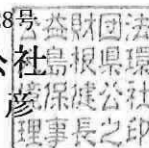 8号
公社
彦
公益財団法
人島根県環
境保健公社
理事長之印